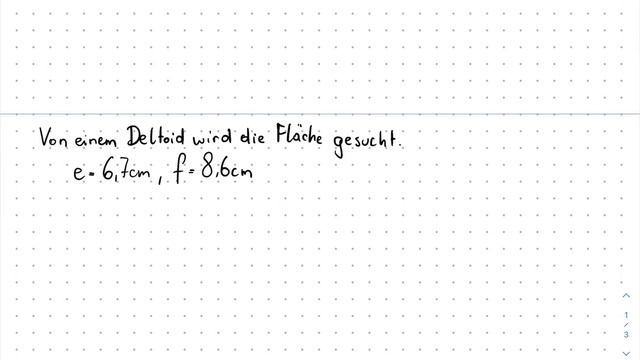 Von einem Deltoid wird die Fläche gesucht.
e = 6,7cm, f = 8,6cm
1
/
3